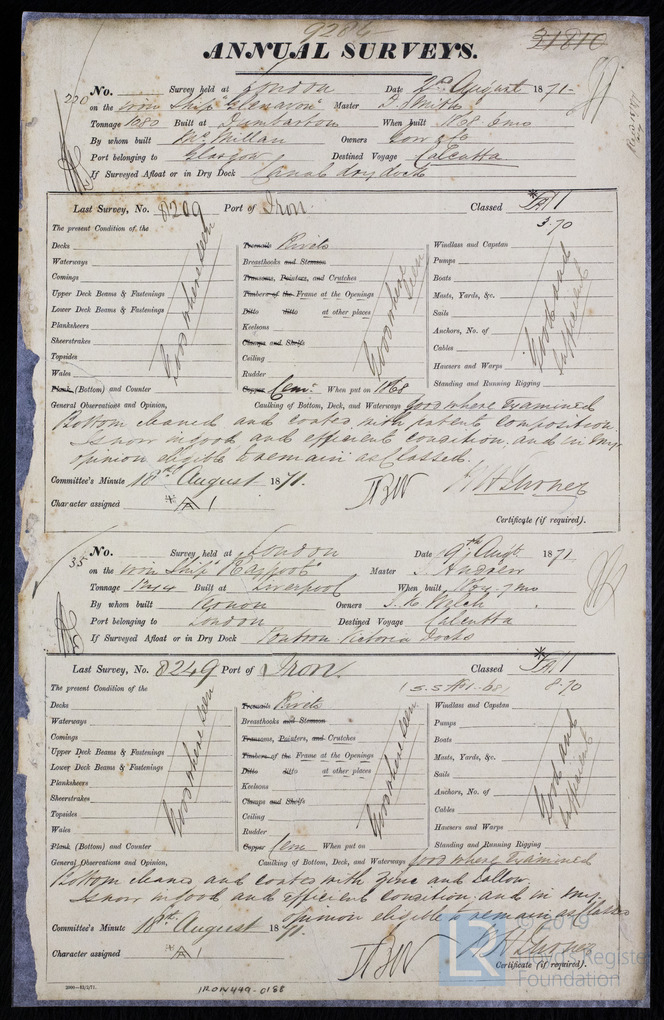 9286
31810
ANNUAL SURVEYS.
220
No. Survey held at London Date 2nd August 1871-
on the iron Ship "Glenavon" Master D. Smith
Tonnage 1080 Built at Dumbarton When built 1868 8mo
By whom built McMillan Owners Low &c
Port belonging to Glasgow Destined Voyage Calcutta
If Surveyed Afloat or in Dry Dock Canal dry dock
Last Survey, No. 8209 Port of Iron. Classed
3.70
The present Condition of the
Decks
Waterways
Comings
Upper Deck Beams & Fastenings
Lower Deck Beams & Fastenings
Planksheers
Sheerstrakes
Topsides
Wales
Plank (Bottom) and Counter
Good where seen
Treenails Rivets
Breasthooks and Stemson
Transoms, Pointers, and Crutches
Timbers of the Frame at the Openings
Ditto ditto at other places
Keelsons
Clamps and Shelfs
Ceiling
Rudder
Copper Cem. When put on 1868
Good where seen
Windlass and Capstan
Pumps
Boats
Masts, Yards, &c.
Sails
Anchors, No. of
Cables
Hawsers and Warps
Standing and Running Rigging
Good and sufficient
General Observations and Opinion, Caulking of Bottom, Deck, and Waterways Good where Examined
Bottom cleaned and coated with patent composition.
Is now in good and efficient condition, and in my
opinion eligible to remain as Classed.
Committee's Minute 18th August 1871.
Character assigned * A 1
Certificate (if required).
35
No. Survey held at London Date 9th Augt. 1871
on the iron Ship "Rajpoot" Master Andrew
Tonnage Built at Liverpool When built 7mo
By whom built Vernon Owners Welch
Port belonging to London Destined Voyage Calcutta
If Surveyed Afloat or in Dry Dock Pontoon Victoria Docks
Last Survey, No. 8249 Port of Iron. Classed
S.S No 1-68 8-70
The present Condition of the
Decks
Waterways
Comings
Upper Deck Beams & Fastenings
Lower Deck Beams & Fastenings
Planksheers
Sheerstrakes
Topsides
Wales
Plank (Bottom) and Counter
Good where seen
Treenails Rivets
Breasthooks and Stemson
Transoms, Pointers, and Crutches
Timbers of the Frame at the Openings
Ditto ditto at other places
Keelsons
Clamps and Shelfs
Ceiling
Rudder
Copper Cem When put on
Good where seen
Windlass and Capstan
Pumps
Boats
Masts, Yards, &c.
Sails
Anchors, No. of
Cables
Hawsers and Warps
Standing and Running Rigging
Good and sufficient
General Observations and Opinion, Caulking of Bottom, Deck, and Waterways Good where Examined
Bottom cleaned and coated with Zinc and Tallow.
Is now in good and efficient condition, and in my
opinion eligible to remain as Classed
Committee's Minute 18th August 1871.
Character assigned * A 1
Certificate (if required).
IRON449-0188
LR
© 2019
Lloyd's Register
Foundation